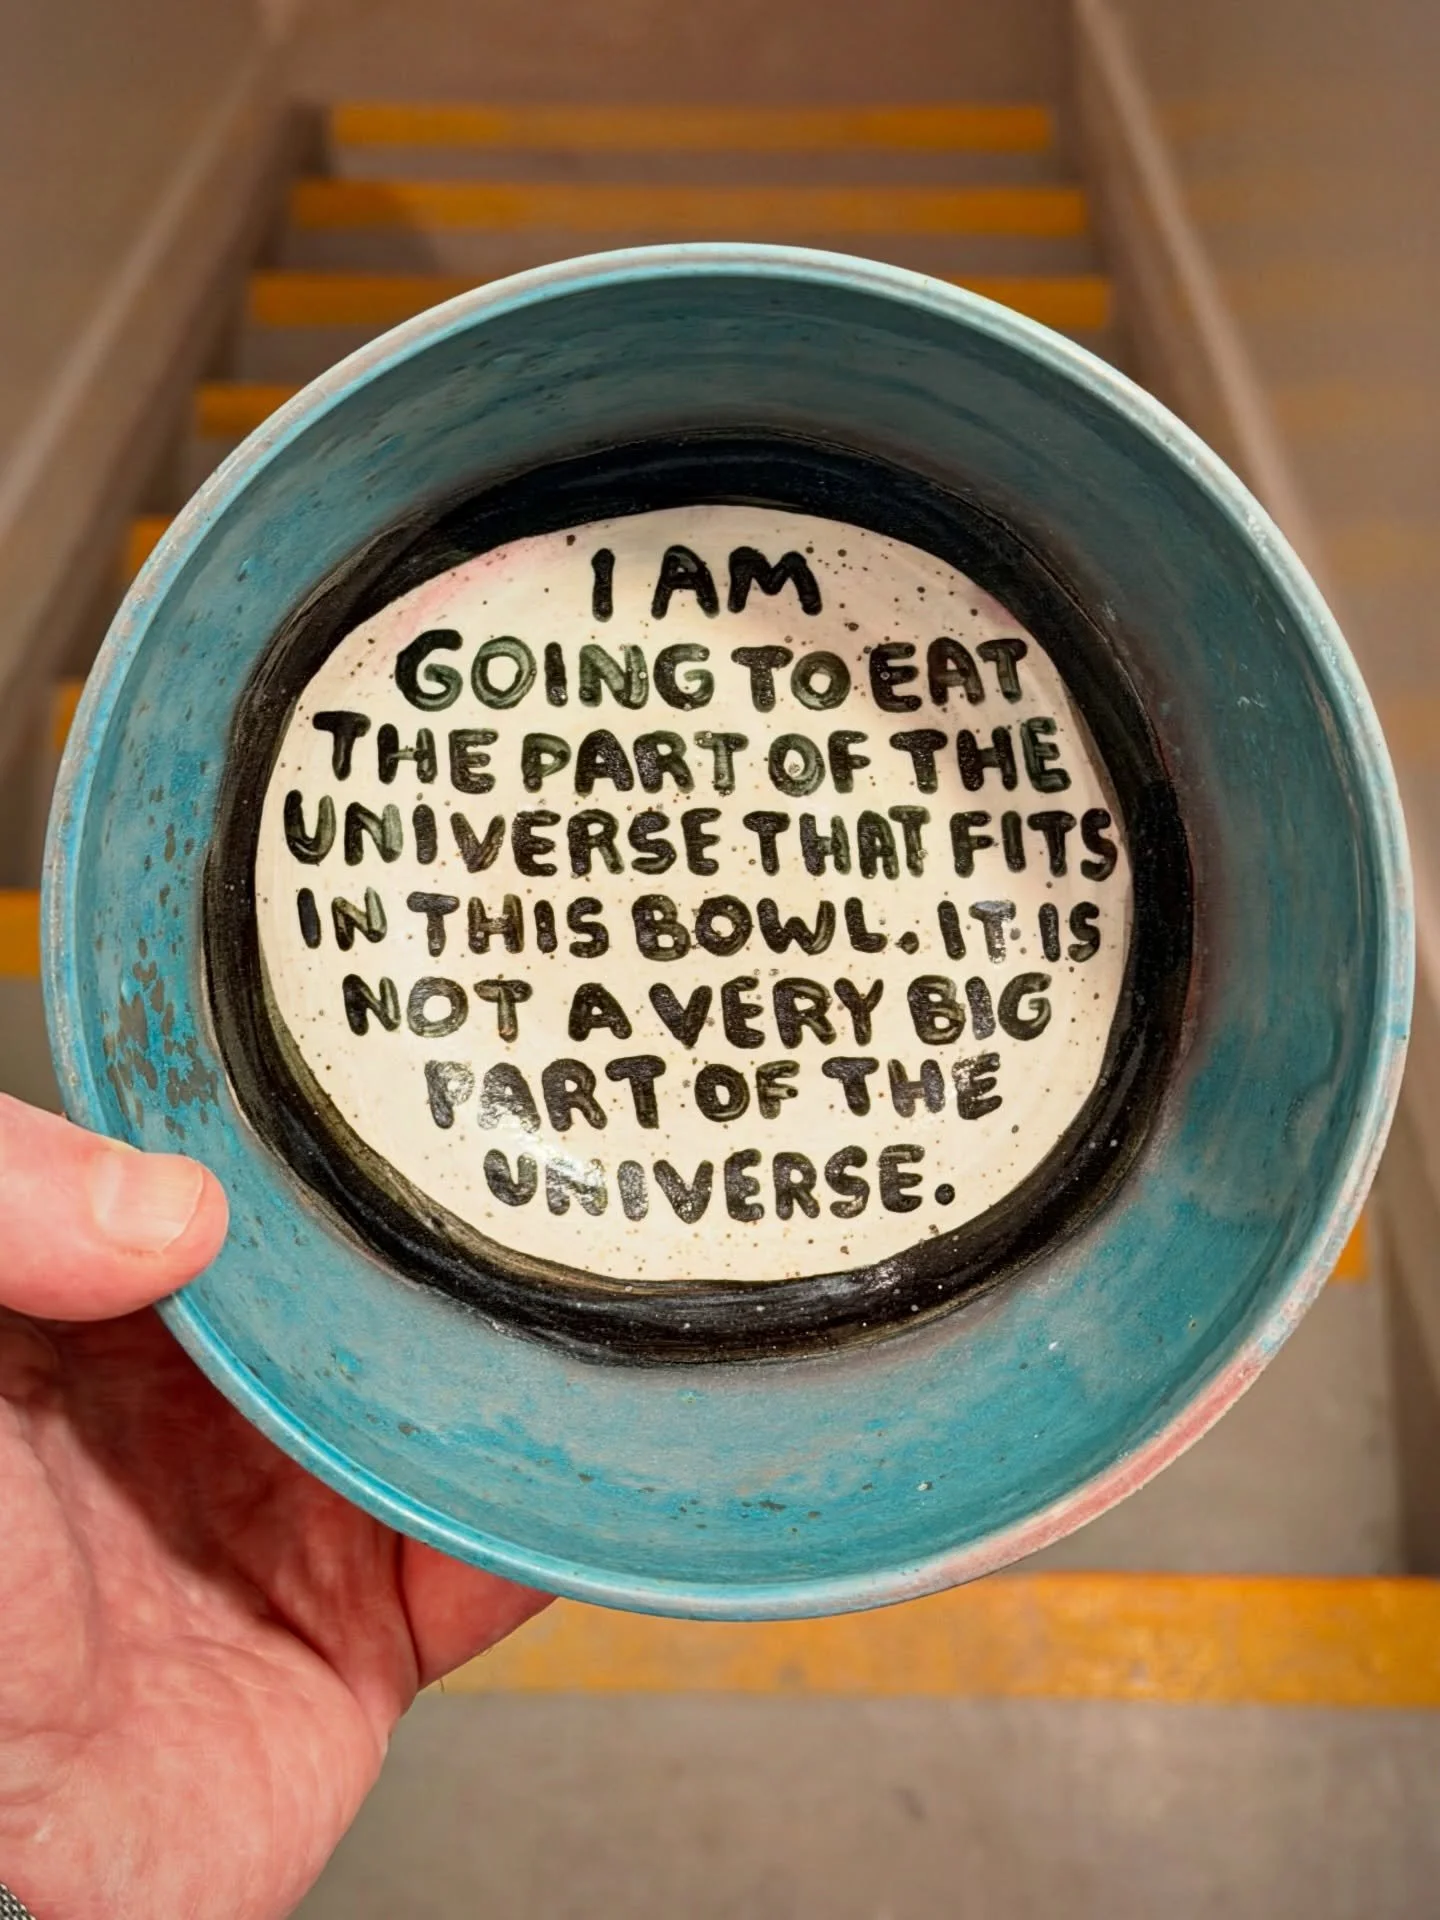 I AM
GOING TO EAT
THE PART OF THE
UNIVERSE THAT FITS
IN THIS BOWL. IT IS
NOT A VERY BIG
PART OF THE
UNIVERSE.